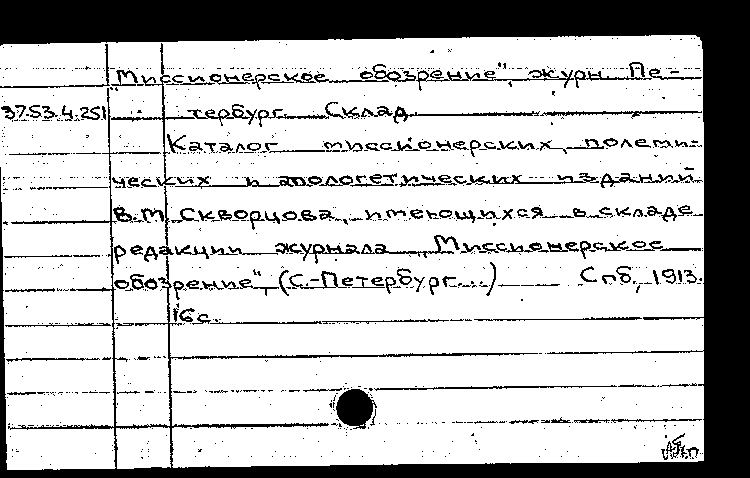 "Миссионерское обозрение", журн. Пе-
37.53.4.251 тербург. Склад.
Каталог миссионерских, полеми-
ческих и апологетических изданий
В.М. Скворцова, имеющихся в складе
редакции журнала „Миссионерское
обозрение", (С.-Петербург...) Спб., 1913.
16 с.